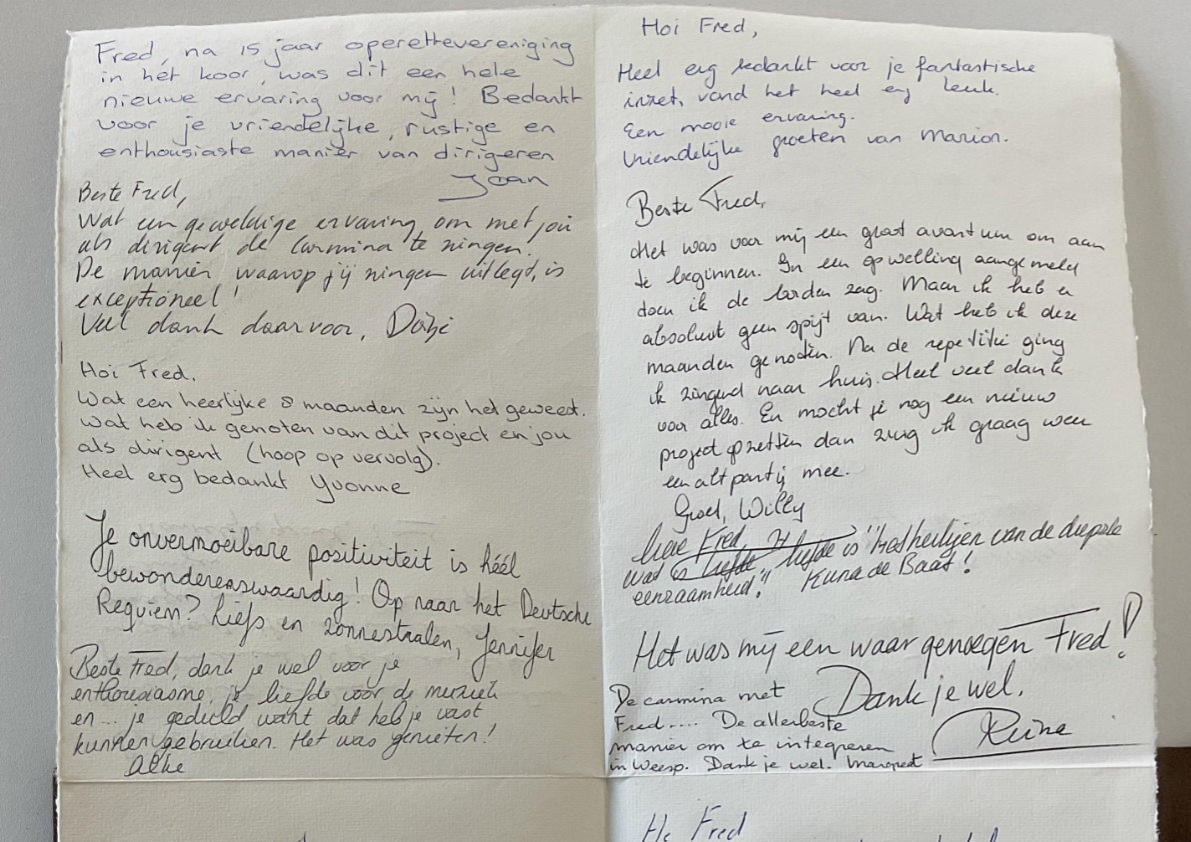 Fred, na 15 jaar operettevereniging
in het koor, was dit een hele
nieuwe ervaring voor mij! Bedankt
voor je vriendelijke, rustige en
enthousiaste manier van dirigeren
Joan
Beste Fred,
Wat een geweldige ervaring om met jou
als dirigent de Carmina te zingen!
De manier waarop jij zingen uitlegt, is
exceptioneel!
Veel dank daarvoor,
Hoi Fred.
Wat een heerlijke 8 maanden zijn het geweest.
Wat heb ik genoten van dit project en jou
als dirigent (hoop op vervolg).
Heel erg bedankt Yvonne
Je onvermoeibare positiviteit is héél
bewonderenswaardig! Op naar het Deutsche
Requiem? Liefs en zonnestralen, Jennifer
Beste Fred, dank je wel voor je
enthousiasme, je liefde voor de muziek
en... je geduld want dat heb je vast
kunnen gebruiken. Het was genieten!
Hoi Fred,
Heel erg bedankt voor je fantastische
inzet, vond het heel erg leuk.
Een mooie ervaring.
Vriendelijke groeten van Marion.
Beste Fred,
Het was voor mij een groot avontuur om aan
te beginnen. In een opwelling aangemeld
doen ik de zag. Maar ik heb er
absoluut geen spijt van. Wat heb ik deze
maanden genoten. Na de repetitie ging
ik zingend naar huis. Heel veel dank
voor alles. En mocht je nog een nieuw
project opzetten dan zing ik graag weer
een altpartij mee.
Groet, Willy
lieve Fred,
wat is liefde liefde is "Het heiligen van de diepste
eenzaamheid". de Baat!
Het was mij een waar genoegen Fred!
Dank je wel,
De carmina met
Fred.... De allerbeste
manier om te integreren
in Weesp. Dank je wel. Margreet
Fred